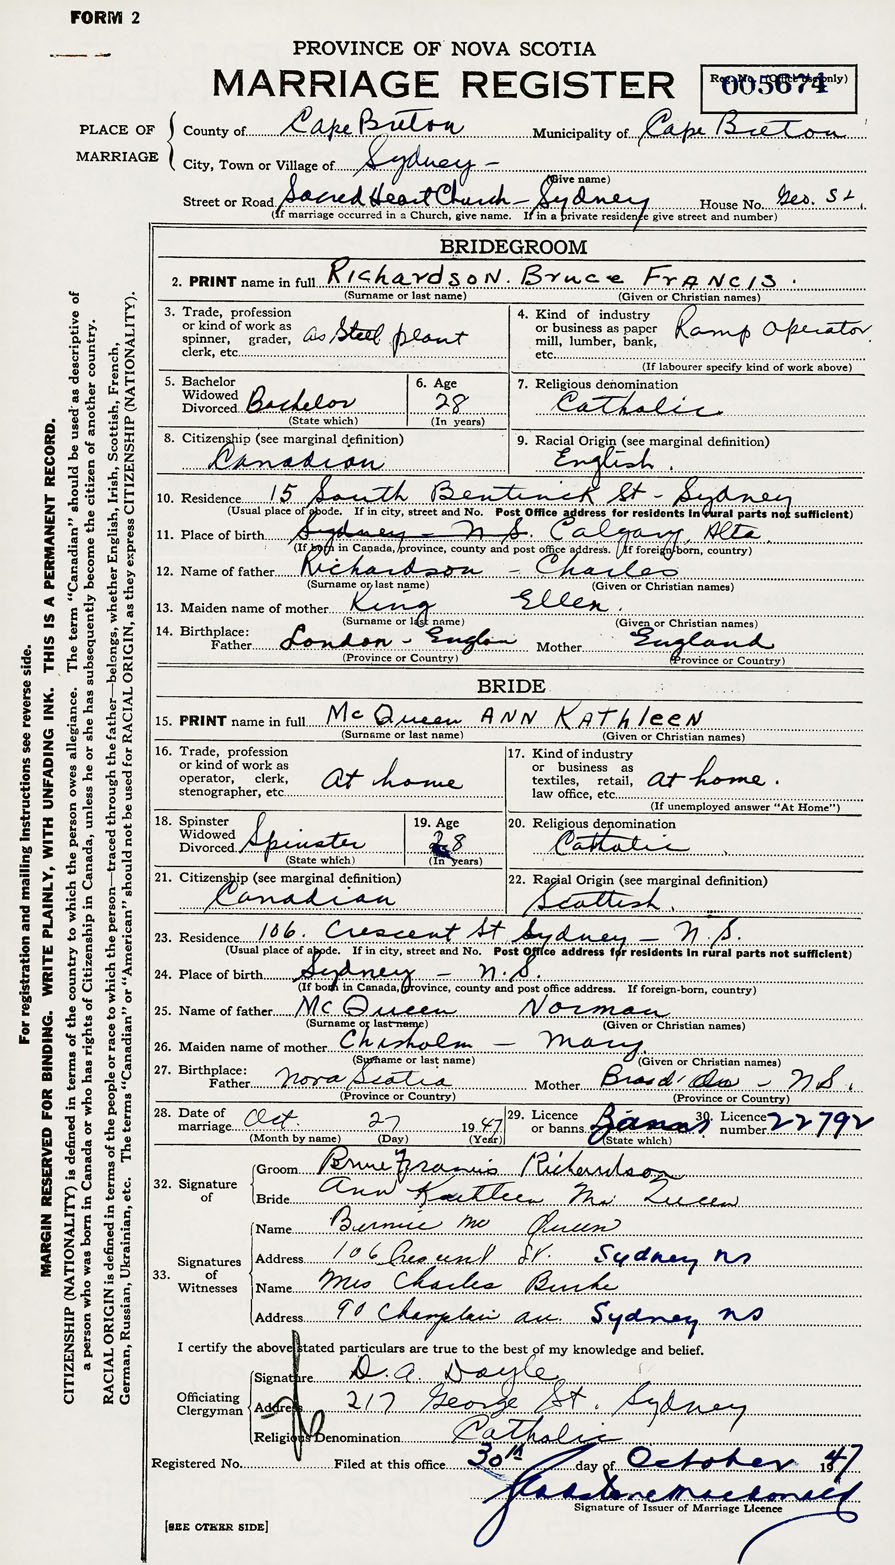 FORM 2
PROVINCE OF NOVA SCOTIA
MARRIAGE REGISTER
Reg. No. (Office use only)
005674
PLACE OF MARRIAGE
County of Cape Breton Municipality of Cape Breton
City, Town or Village of Sydney -
(Give name)
Street or Road Sacred Heart Church - Sydney House No. Geo. St.
(If marriage occurred in a Church, give name. If in a private residence give street and number)
BRIDEGROOM
2. PRINT name in full Richardson. Bruce Francis.
(Surname or last name) (Given or Christian names)
3. Trade, profession or kind of work as spinner, grader, clerk, etc. as Steel plant
4. Kind of industry or business as paper mill, lumber, bank, etc. Ramp Operator
(If labourer specify kind of work above)
5. Bachelor Widowed Divorced Bachelor
(State which)
6. Age 28
(In years)
7. Religious denomination Catholic
8. Citizenship (see marginal definition) Canadian
9. Racial Origin (see marginal definition) English.
10. Residence 15 South Bentinck St - Sydney
(Usual place of abode. If in city, street and No. Post Office address for residents in rural parts not sufficient)
11. Place of birth Sydney - N.S. Calgary, Alta
(If born in Canada, province, county and post office address. If foreign-born, country)
12. Name of father Richardson - Charles
(Surname or last name) (Given or Christian names)
13. Maiden name of mother King Ellen.
(Surname or last name) (Given or Christian names)
14. Birthplace: Father London - Englan Mother England
(Province or Country) (Province or Country)
BRIDE
15. PRINT name in full McQueen ANN KAThleeN
(Surname or last name) (Given or Christian names)
16. Trade, profession or kind of work as operator, clerk, stenographer, etc. At home
17. Kind of industry or business as textiles, retail, law office, etc. At home.
(If unemployed answer "At Home")
18. Spinster Widowed Divorced Spinster
(State which)
19. Age 28
(In years)
20. Religious denomination Catholic
21. Citizenship (see marginal definition) Canadian
22. Racial Origin (see marginal definition) Scottish.
23. Residence 106. Crescent St Sydney - N.S.
(Usual place of abode. If in city, street and No. Post Office address for residents in rural parts not sufficient)
24. Place of birth Sydney - N.S.
(If born in Canada, province, county and post office address. If foreign-born, country)
25. Name of father McQueen Norman
(Surname or last name) (Given or Christian names)
26. Maiden name of mother Chisholm - Mary
(Surname or last name) (Given or Christian names)
27. Birthplace: Father Nova Scotia Mother - N.S.
(Province or Country) (Province or Country)
28. Date of marriage Oct. 27 1947
(Month by name) (Day) (Year)
29. Licence or banns Banns
(State which)
30. Licence number 22792
32. Signature of
Groom Bruce Francis Richardson
Bride Ann Kathleen McQueen
33. Signatures of Witnesses
Name Bernie McQueen
Address 106 Crescent St. Sydney NS
Name Mrs Charles Burke
Address 90 Champlain Av. Sydney NS
I certify the above stated particulars are true to the best of my knowledge and belief.
Officiating Clergyman
Signature D. A. Doyle
Address 217 George St. Sydney
Religious Denomination Catholic
Registered No. Filed at this office 30th day of October 1947
Gladstone Macdonald
Signature of Issuer of Marriage Licence
[SEE OTHER SIDE]
For registration and mailing instructions see reverse side.
MARGIN RESERVED FOR BINDING. WRITE PLAINLY, WITH UNFADING INK. THIS IS A PERMANENT RECORD.
CITIZENSHIP (NATIONALITY) is defined in terms of the country to which the person owes allegiance. The term "Canadian" should be used as descriptive of
a person who was born in Canada or who has rights of Citizenship in Canada, unless he or she has subsequently become the citizen of another country.
RACIAL ORIGIN is defined in terms of the people or race to which the person—traced through the father—belongs, whether English, Irish, Scottish, French,
German, Russian, Ukrainian, etc. The terms "Canadian" or "American" should not be used for RACIAL ORIGIN, as they express CITIZENSHIP (NATIONALITY).